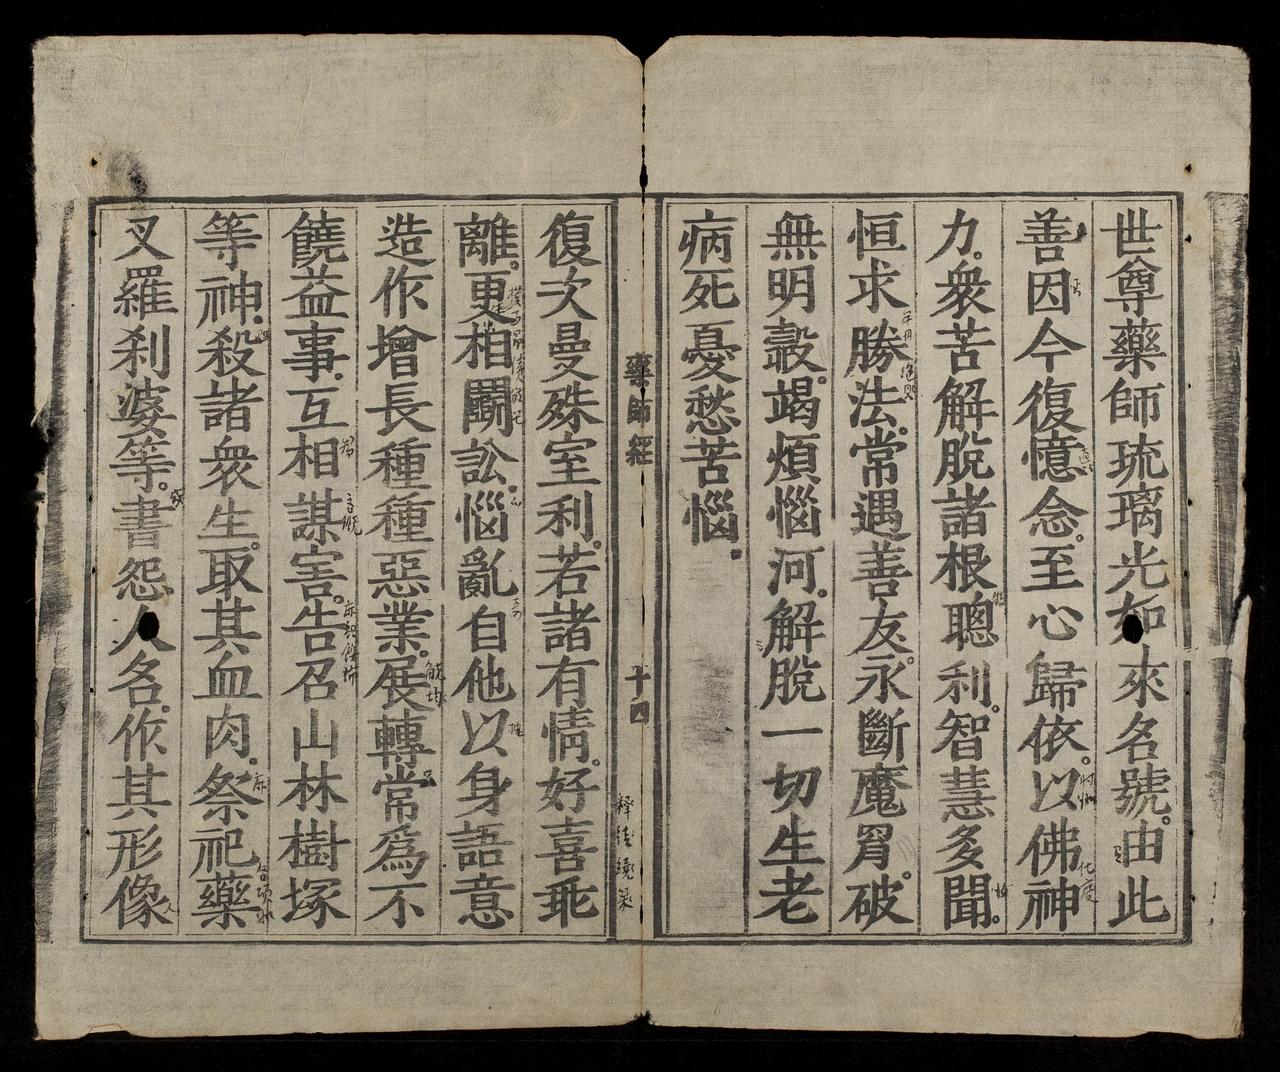 世尊藥師琉璃光如來名號由此
善因今復憶念至心歸依以佛神
力衆苦解脫諸根聰利智慧多聞
恒求勝法常遇善友永斷魔罥破
無明㲉竭煩惱河解脫一切生老
病死憂愁苦惱
藥師經
十四
復次曼殊室利若諸有情好喜乖
離更相鬪訟惱亂自他以身語意
造作增長種種惡業展轉常爲不
饒益事互相謀害告召山林樹塚
等神殺諸衆生取其血肉祭祀藥
叉羅刹婆等書怨人名作其形像